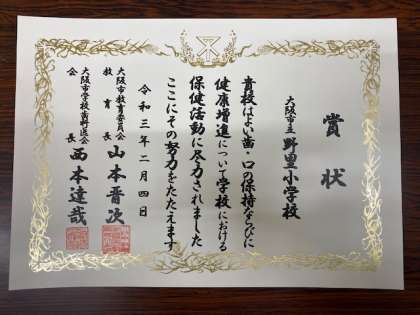 賞状
大阪市立 野里小学校
貴校はよい歯・口の保持ならびに
健康増進について学校における
保健活動に尽力されました
ここにその努力をたたえます
令和三年二月四日
大阪市教育委員会
教育長 山本晋次
大阪市学校歯科医会
会長 西本達哉